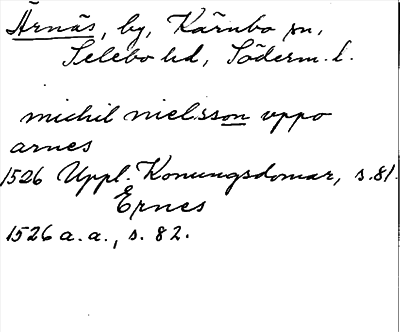 Ärnäs, by, Kärnbo sn,
Selebo hd, Söderm. l.
michil nielsson vppo
arnes
1526 Uppl. Konungsdomar, s. 81.
Ernes
1526 a. a., s. 82.